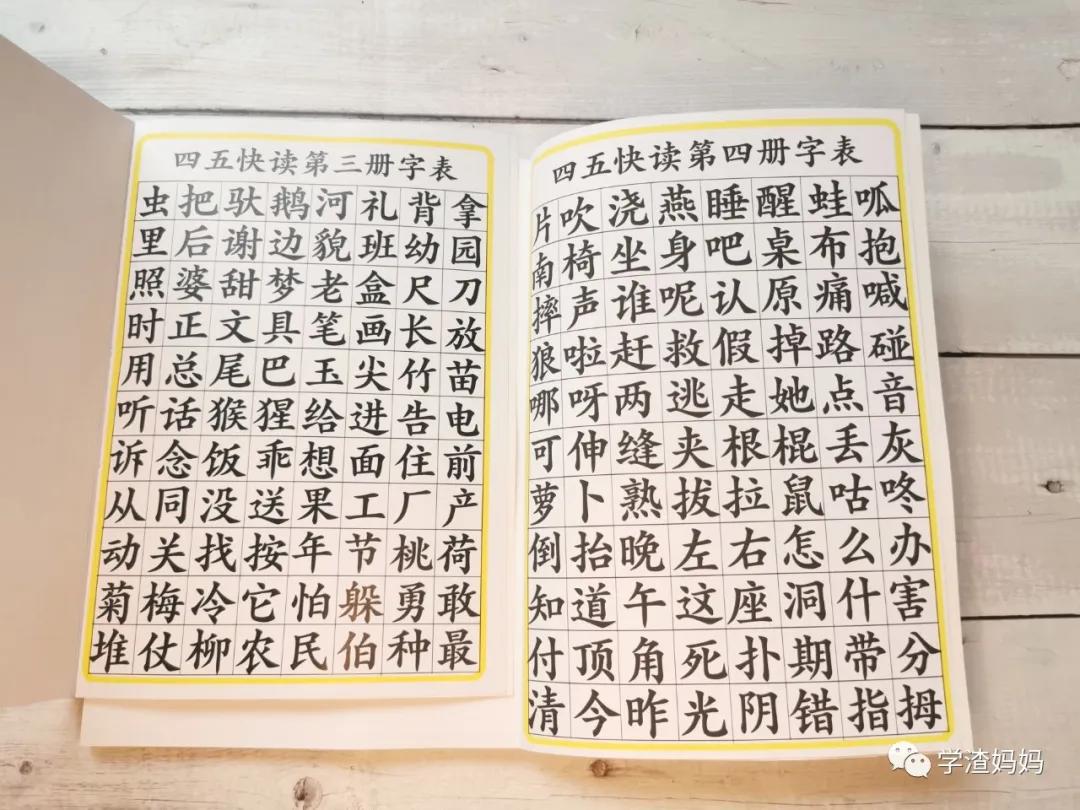 四五快读第三册字表
虫把驮鹅河礼背拿
里后谢边貌班幼园
照婆甜梦老盒尺刀
时正文具笔画长放
用总尾巴玉尖竹苗
听话猴猩给进告电
诉念饭乖想面住前
从同没送果工厂产
动关找按年节桃荷
菊梅冷它怕躲勇敢
堆仗柳农民伯种最
四五快读第四册字表
片吹浇燕睡醒蛙呱
南椅坐身吧桌布抱
摔声谁呢认原痛喊
狼啦赶救假掉路碰
哪呀两逃走她点音
可伸缝夹根棍丢灰
萝卜熟拔拉鼠咕咚
倒抬晚左右怎么办
知道午这座洞什害
付顶角死扑期带分
清今昨光阴错指拇
学渣妈妈